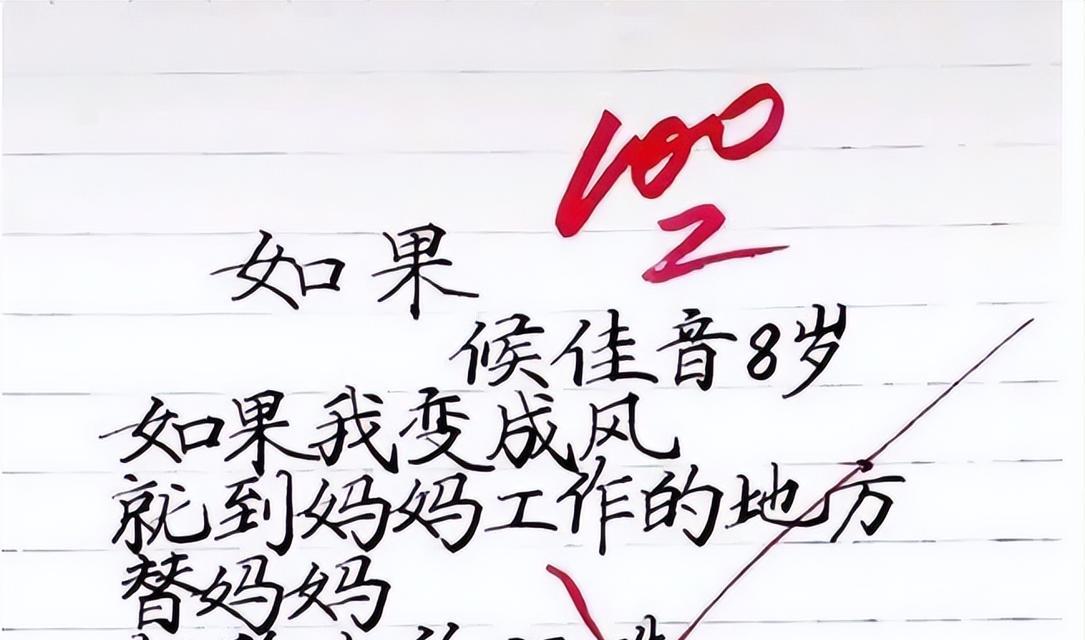 100
如果
候佳音8岁
如果我变成风
就到妈妈工作的地方
替妈妈